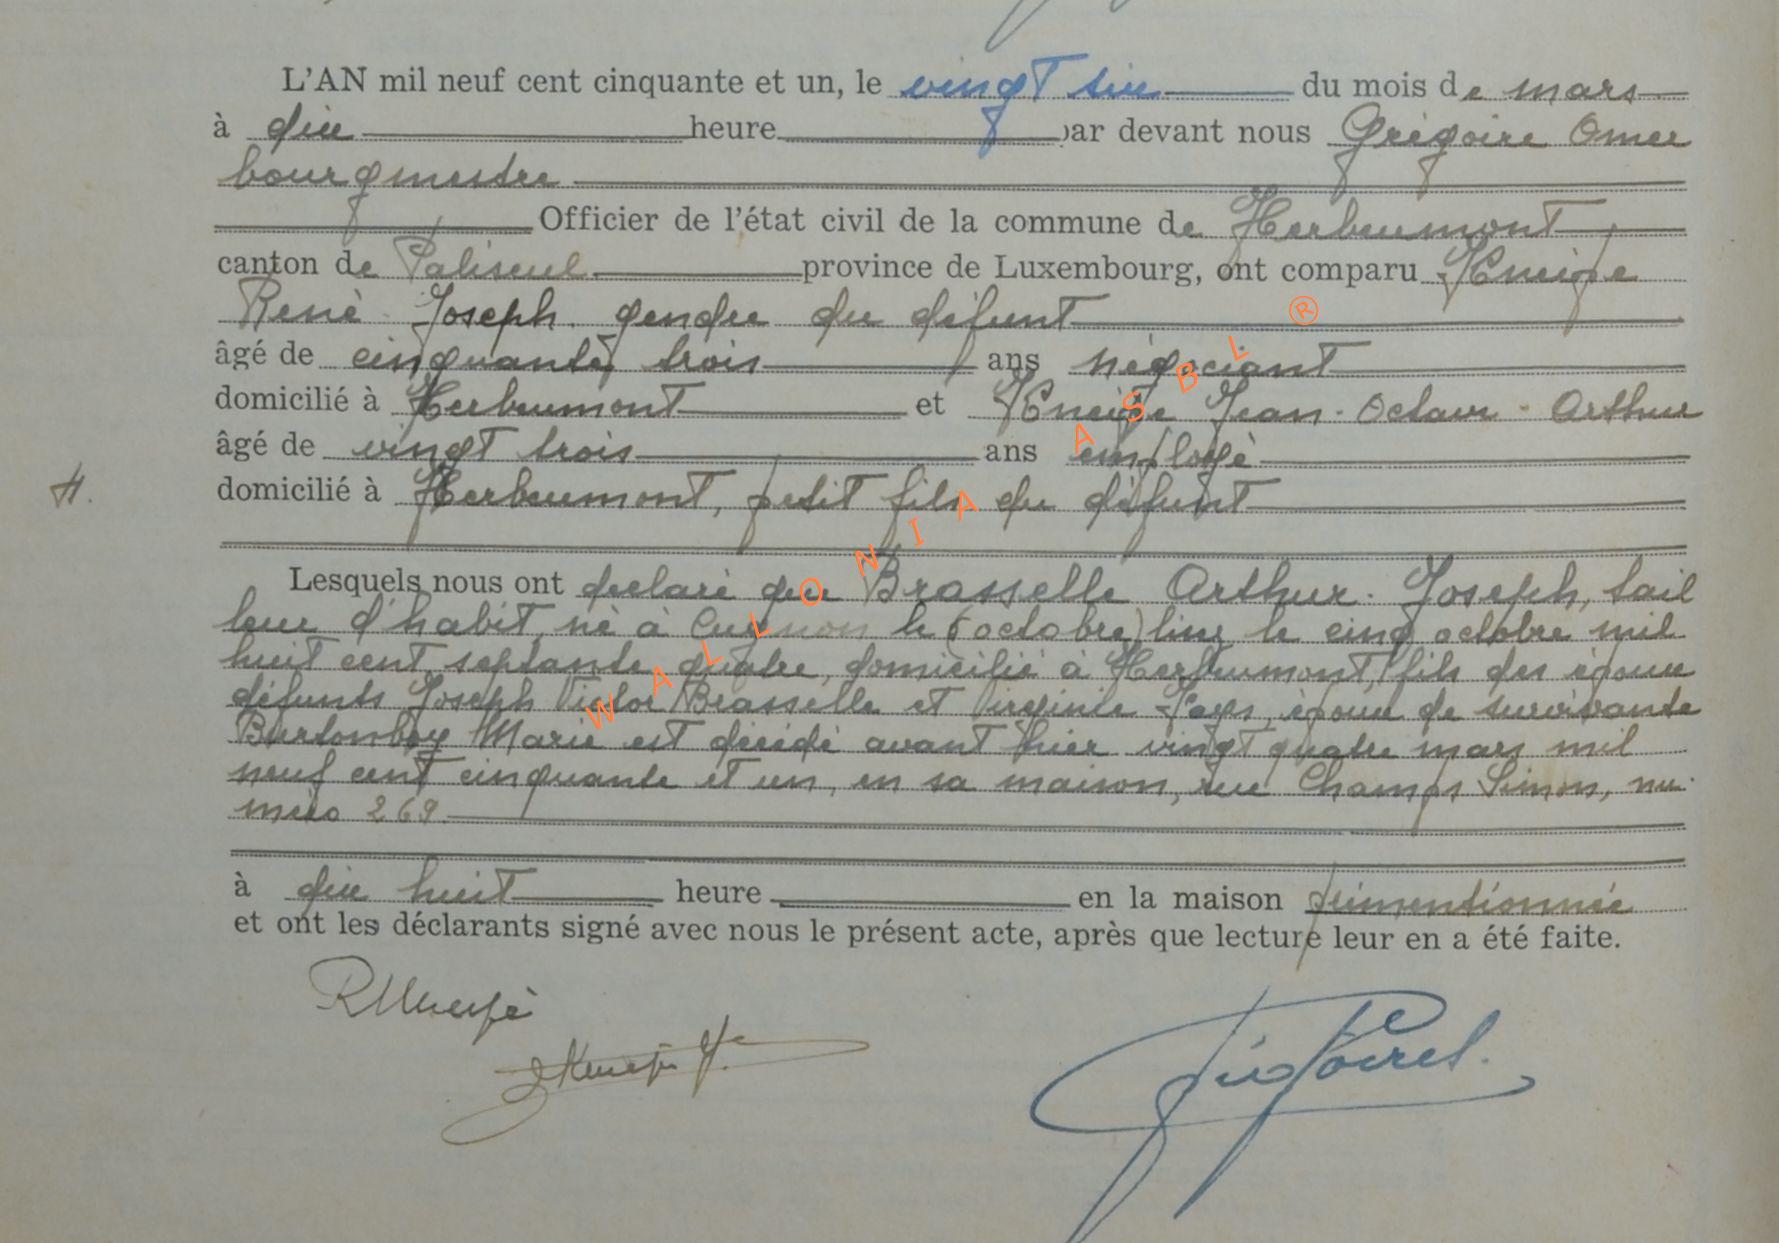 L'AN mil neuf cent cinquante et un, le vingt six du mois de mars
à dix heure par devant nous Grégoire Omer
bourgmestre
Officier de l'état civil de la commune de Herbeumont
canton de Paliseul province de Luxembourg, ont comparu
René Joseph gendre du défunt
âgé de cinquante trois ans négociant
domicilié à Herbeumont et Jean Octave Arthur
âgé de vingt trois ans employé
H. domicilié à Herbeumont, petit fils du défunt
Lesquels nous ont déclaré que Brasselle Arthur Joseph, tail
leur d'habit, né à Cugnon le (octobre) le cinq octobre mil
huit cent septante quatre, domicilié à Herbeumont, fils des époux
défunts Joseph Victor Brasselle et Virginie époux de survivante
Marie est décédé avant hier vingt quatre mars mil
neuf cent cinquante et un, en sa maison, rue Champs Simon, nu
méro 269.
à dix huit heure en la maison prémentionnée
et ont les déclarants signé avec nous le présent acte, après que lecture leur en a été faite.
WALLONIA ASBL ®